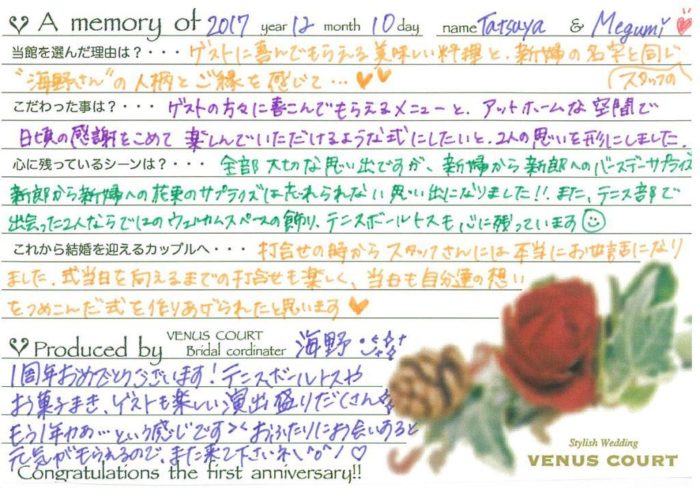 A memory of 2017 year 12 month 10 day name Tatsuya & Megumi
当館を選んだ理由は？・・・ ゲストに喜んでもらえる美味しい料理と、新婦の名字と同じ
"海野さん"の人柄とご縁を感じて… スタッフの
こだわった事は？・・・ ゲストの方々に喜こんでもらえるメニューと、アットホームな空間で
日頃の感謝をこめて 楽しんでいただけるような式にしたいと、2人の思いを形にしました。
心に残っているシーンは？・・・ 全部大切な思い出ですが、新婦から新郎へのバースデーサプライズ
新郎から新婦への花束のサプライズは忘れられない思い出になりました!!. また、テニス部で
出会った2人ならではのウェルカムスペースの飾り、テニスボールトスも心に残っています
これから結婚を迎えるカップルへ・・・ 打合せの時からスタッフさんには本当にお世話になり
ました。式当日を向えるまでの打合せも楽しく、当日も自分達の想い
をつめこんだ式を作りあげられたと思います
Produced by VENUS COURT Bridal cordinater 海野
1周年おめでとうございます！テニスボールトスや
お菓子まき、ゲストも楽しい演出盛りだくさん
もう1年かぁ…という感じです＞＜ おふたりにお会いすると
元気がもらえるので、また来て下さいネ＼^o^／♡
Congratulations the first anniversary!!
Stylish Wedding
VENUS COURT